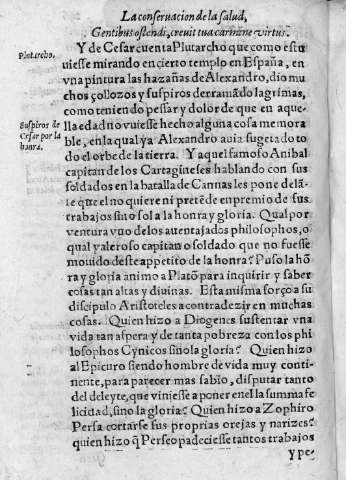 La conseruacion de la salud,
Gentibus ostendi, creuit tua carmine virtus.
Y de Cesar cuenta Plutarcho que como estu
Plutarcho.
uiesse mirando en cierto templo en España, en
vna pintura las hazañas de Alexandro, dio mu
chos çollozos y suspiros derramãdo lagrimas,
como teniendo pessar y dolor de que en aque
Suspiros de
Cesar por la
honra.
lla edad no vuiesse hecho alguna cosa memora
ble, en la qual ya Alexandro auia sugetado to
do el orbe de la tierra. Y aquel famoso Anibal
capitan de los Cartagineses hablando con sus
soldados en la batalla de Cannas les pone delã-
te que el no quiere ni pretẽde en premio de sus
trabajos sino sola la honra y gloria. Qual por
ventura vno de los auentajados philosophos, o
qual valeroso capitan o soldado que no fuesse
mouido deste appetito de la honra? Puso la hõ
ra y gloria animo a Platõ para inquirir y saber
cosas tan altas y diuinas. Esta misma forço a su
discipulo Aristoteles a contradezir en muchas
cosas. Quien hizo a Diogenes sustentar vna
vida tan aspera y de tanta pobreza con los phi
losophos Cynicos sino la gloria? Quien hizo
al Epicuro siendo hombre de vida muy conti-
nente, para parecer mas sabio, disputar tanto
del deleyte, que viniesse a poner en el la summa fe
licidad, sino la gloria? Quien hizo a Zophiro
Persa cortarse sus propias orejas y narizes?
quien hizo q̃ Perseo padeciesse tantos trabajos
y pe-